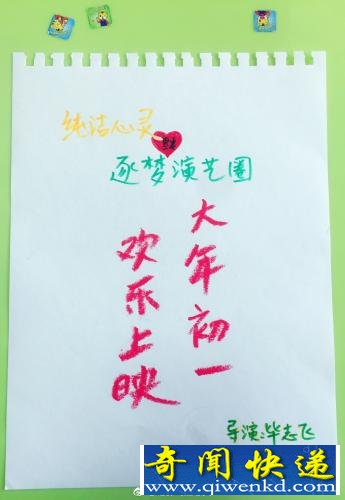 纯洁心灵
逐梦演艺圈
大年初一
欢乐上映
导演:毕志飞
奇闻快递
www.qiwenkd.com